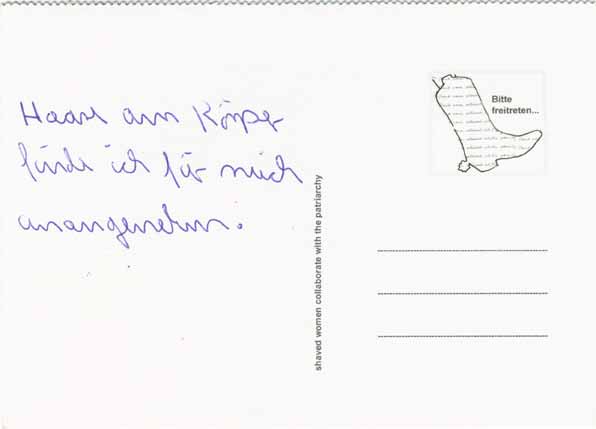 Haare am Körper
finde ich für mich
unangenehm.
Bitte
freitreten...
shaved women collaborate with the patriarchy